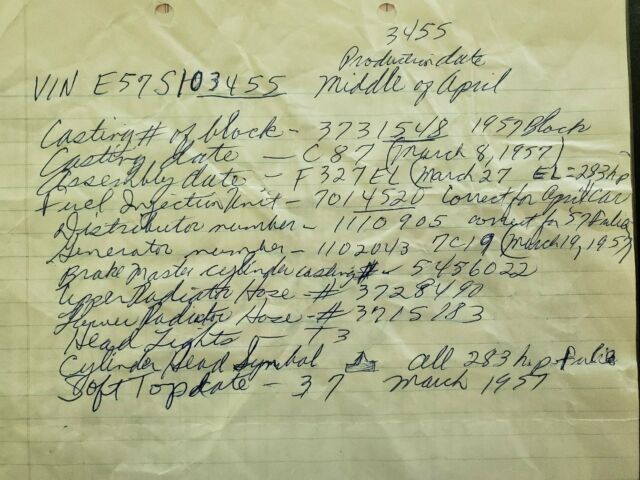 3455
Production date
VIN E57S103455 Middle of April
Casting # of block - 3731548 1957 Block
Casting date - C 8 7 (March 8, 1957)
Assembly date - F 327 EL (March 27 EL = 283 hp
Fuel Injection Unit - 7014520 correct for April Car
Distributor number - 1110905 correct for 57 Fulie
Generator number - 1102043 7C19 (March 19, 1957)
Brake Master cylinder casting # - 5456022
Upper Radiator Hose - # 3728490
Lower Radiator Hose - # 3715183
Head Lights - T 3
Cylinder Head Symbol all 283 hp Fulie
Soft Top date - 3 7 March 1957